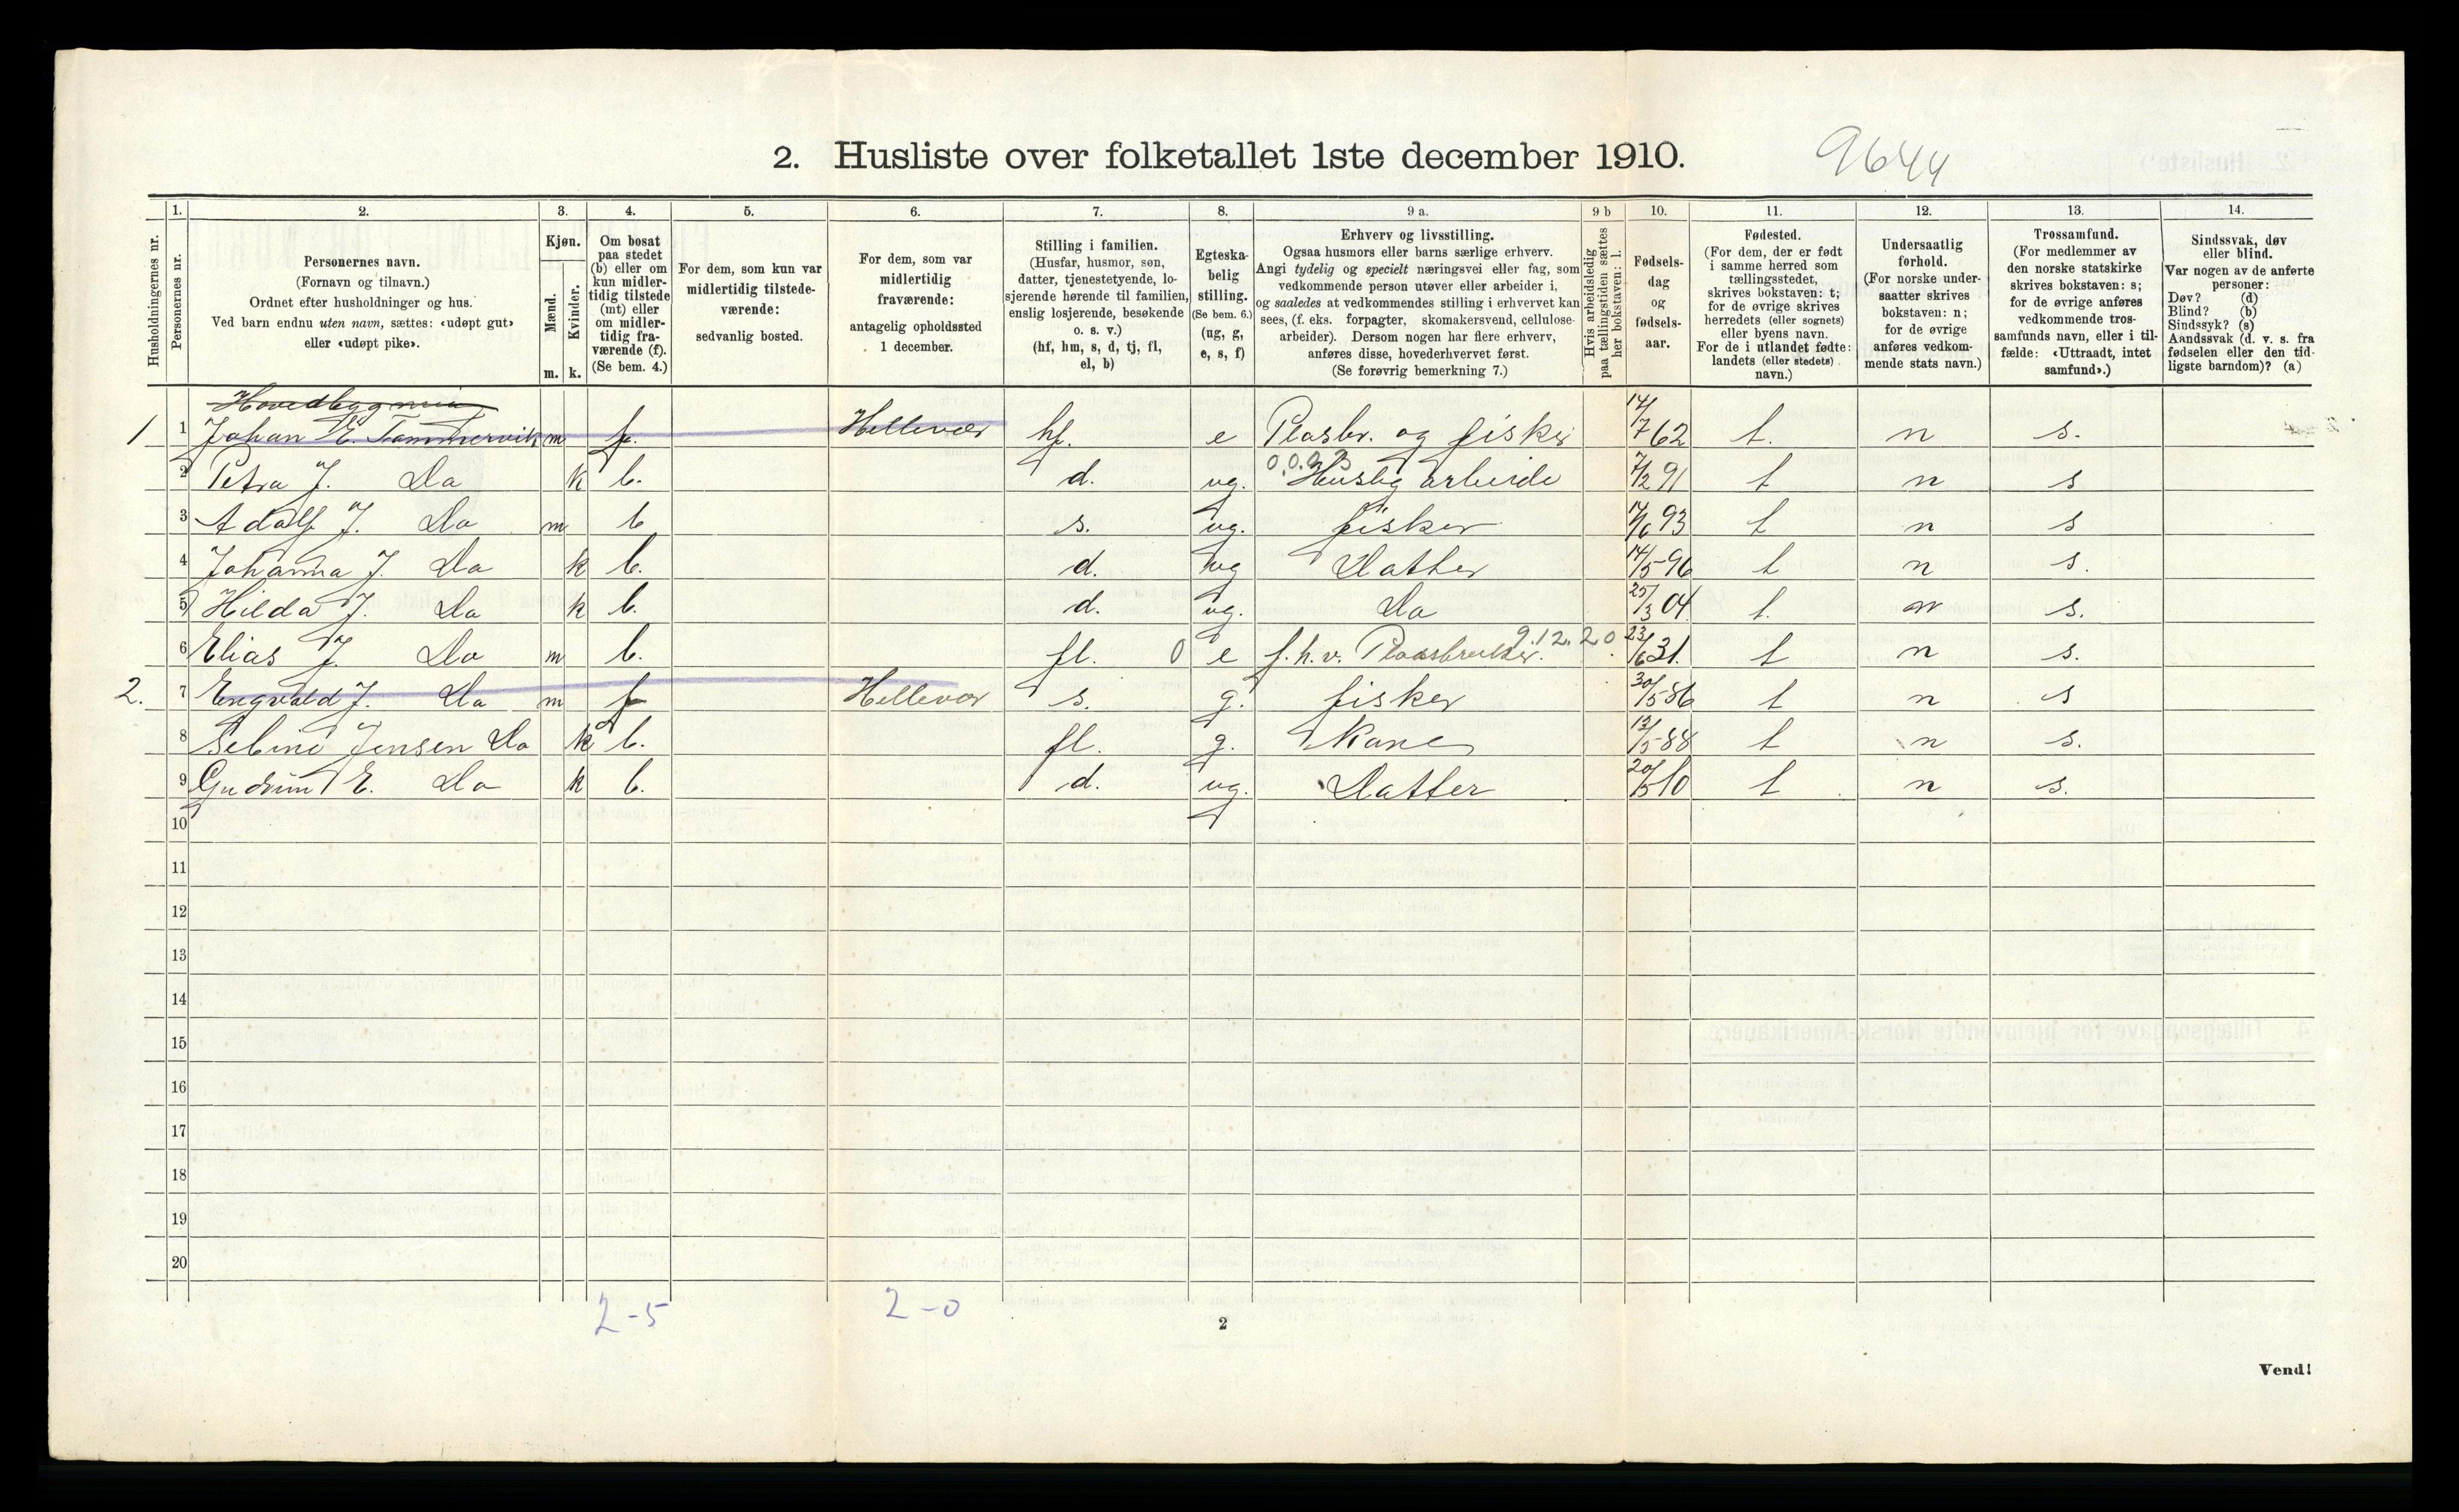 2. Husliste over folketallet 1ste december 1910.
9644
Husholdningernes nr.
1.
Personernes nr.
2.
Personernes navn.
(Fornavn og tilnavn.)
Ordnet efter husholdninger og hus.
Ved barn endnu uten navn, sættes: «udøpt gut»
eller «udøpt pike».
3.
Kjøn.
Mænd.
Kvinder.
m. k.
4.
Om bosat
paa stedet
(b) eller om
kun midler-
tidig tilstede
(mt) eller
om midler-
tidig fra-
værende (f).
(Se bem. 4.)
5.
For dem, som kun var
midlertidig tilstede-
værende:
sedvanlig bosted.
6.
For dem, som var
midlertidig
fraværende:
antagelig opholdssted
1 december.
7.
Stilling i familien.
(Husfar, husmor, søn,
datter, tjenestetyende, lo-
sjerende hørende til familien,
enslig losjerende, besøkende
o. s. v.)
(hf, hm, s, d, tj, fl,
el, b)
8.
Egteska-
belig
stilling.
(Se bem. 6.)
(ug, g,
e, s, f)
9 a.
Erhverv og livsstilling.
Ogsaa husmors eller barns særlige erhverv.
Angi tydelig og specielt næringsvei eller fag, som
vedkommende person utøver eller arbeider i,
og saaledes at vedkommendes stilling i erhvervet kan
sees, (f. eks. forpagter, skomakersvend, cellulose-
arbeider). Dersom nogen har flere erhverv,
anføres disse, hovederhvervet først.
(Se forøvrig bemerkning 7.)
9 b
Hvis arbeidsledig
paa tællingstiden sættes
her bokstaven: l.
10.
Fødsels-
dag
og
fødsels-
aar.
11.
Fødested.
(For dem, der er født
i samme herred som
tællingsstedet,
skrives bokstaven: t;
for de øvrige skrives
herredets (eller sognets)
eller byens navn.
For de i utlandet fødte:
landets (eller stedets)
navn.)
12.
Undersaatlig
forhold.
(For norske under-
saatter skrives
bokstaven: n;
for de øvrige
anføres vedkom-
mende stats navn.)
13.
Trossamfund.
(For medlemmer av
den norske statskirke
skrives bokstaven: s;
for de øvrige anføres
vedkommende tros-
samfunds navn, eller i til-
fælde: «Uttraadt, intet
samfund».)
14.
Sindssvak, døv
eller blind.
Var nogen av de anførte
personer:
Døv? (d)
Blind? (b)
Sindssyk? (s)
Aandssvak (d. v. s. fra
fødselen eller den tid-
ligste barndom)? (a)
Hovedbygning
1 1 Johan E. Tommervik m f. Hellevær hf. e Plasbr. og fisker 14/7 62 t. n s.
2 Petra J. Do k b. d. ug. 0.0.93 Huslig arbeide 7/2 91 t n s
3 Adolf J. Do m b s. ug. fisker 14/6 93 t n s
4 Johanna J. Do k b. d. ug Datter 14/5-96 t n s.
5 Hilda J. Do k b. d. ug. Do 25/3 04 t. n s.
6 Elias J. Do m b. fl. 0 e f.h.v. Plassbruker. 9.12.20 23/6 31. t n s.
2. 7 Engvald J. Do m f Hellevær s. g. fisker 30/5 86 t n s
8 Sebine Jensen Do k b. fl. g. Kone 13/5-88 t n s.
9 Gudrun E. Do k b. d. ug. Datter 20/5 10 t n s.
10
11
12
13
14
15
16
17
18
19
20
2-5 2-0
2
Vend!